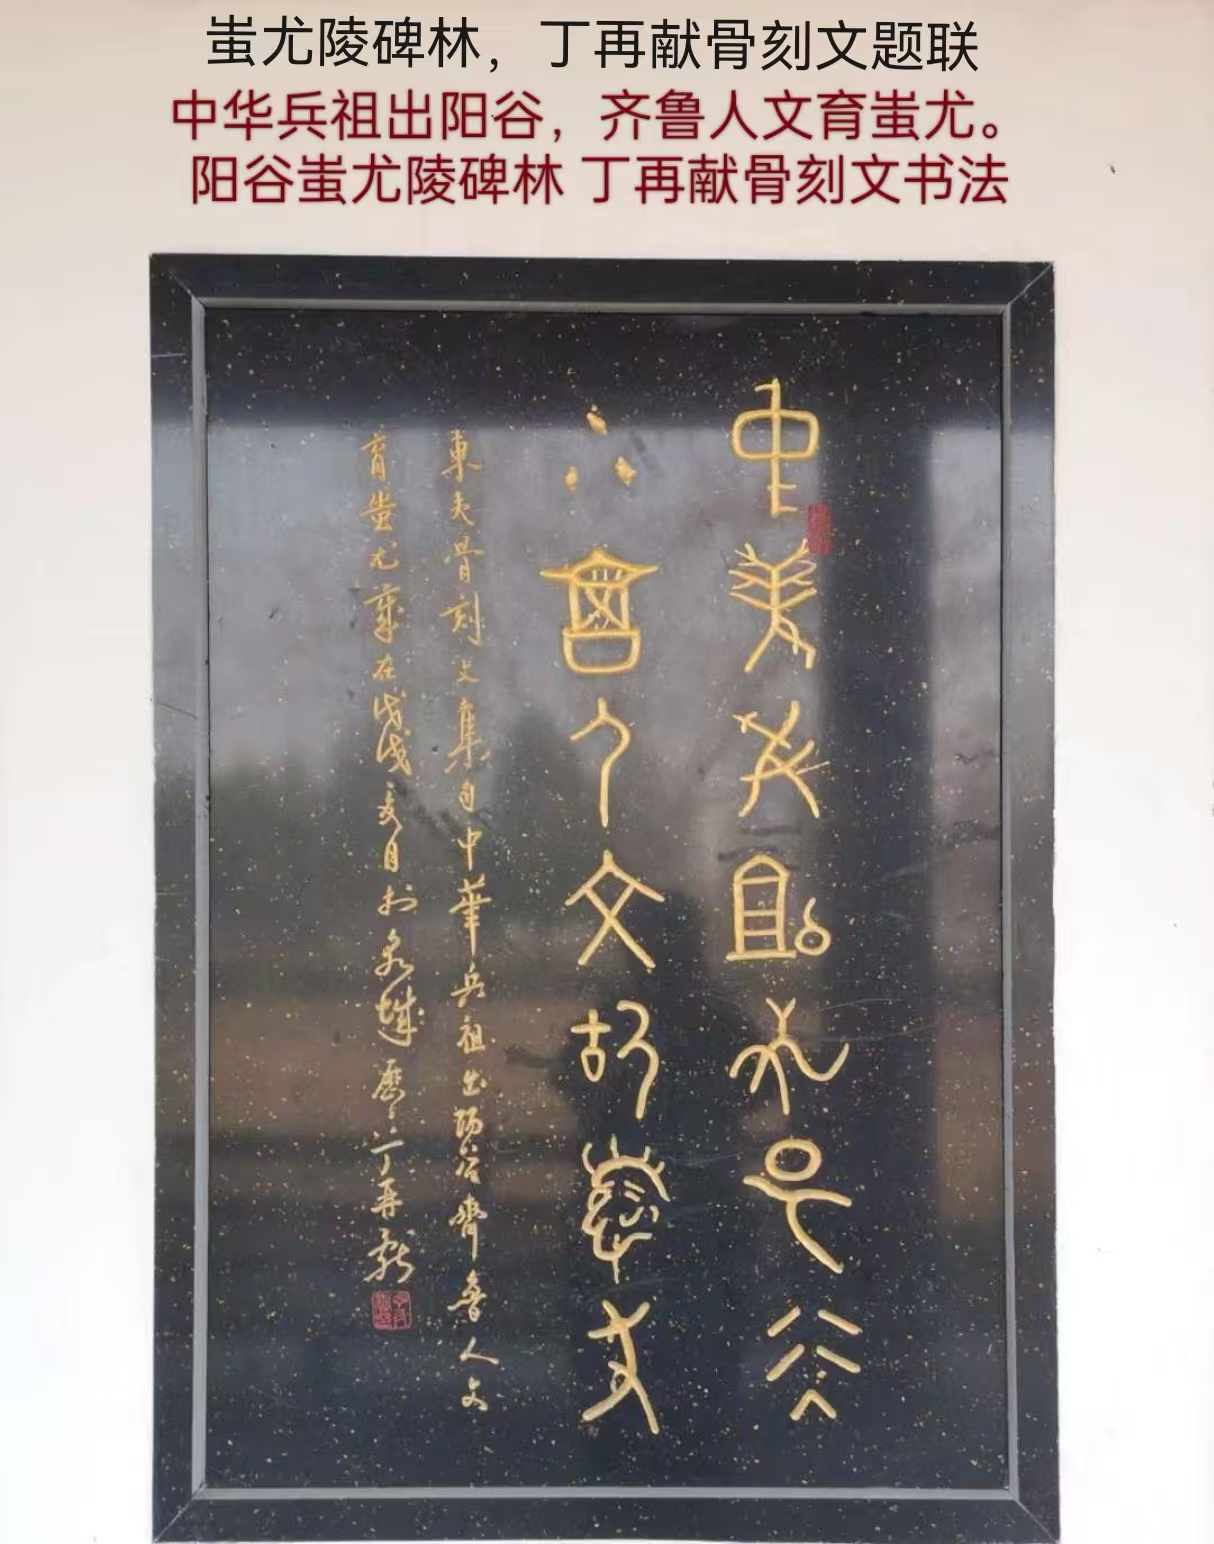 蚩尤陵碑林，丁再献骨刻文题联
中华兵祖出阳谷，齐鲁人文育蚩尤。
阳谷蚩尤陵碑林 丁再献骨刻文书法
中華兵祖出阳谷
齊魯人文育蚩尤
東夷骨刻文集句中華兵祖出阳谷齊魯人文
育蚩尤歲在戊戌夏月於泉城齋丁再献